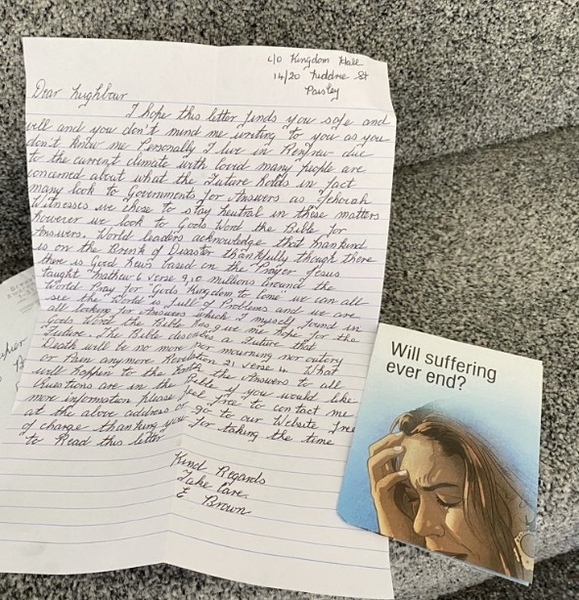 c/o Kingdom Hall
14/20 Niddrie St
Paisley
Dear Neighbour
I hope this letter finds you safe and
well and you don't mind me writing to you as you
don't know me Personally I live in Renfrew due
to the current climate with Covid many people are
concerned about what the Future holds in fact
many look to Governments for Answers as Jehovah
Witnesses we chose to stay neutral in these matters
however we look to Gods Word the Bible for
Answers. World leaders acknowledge that mankind
is on the Brink of Disaster thankfully though there
there is Good News based on the Prayer Jesus
taught "Mathew 6 verse 9,10 millions around the
World Pray for "Gods Kingdom to Come we can all
see the World is full of Problems and we are
all looking for Answers which I myself found in
Gods Word the Bible has give me Hope for the
Future. The Bible describes a Future that
Death will be no more nor mourning nor outcry
or Pain anymore Revelation 21 verse 4 What
will happen to the Earth the Answers to all
Questions are in the Bible if you would like
more information Please feel free to contact me
at the above address or go to our Website free
of charge thanking you for taking the time
to Read this letter
Kind Regards
Take Care
E Brown
Will suffering
ever end?